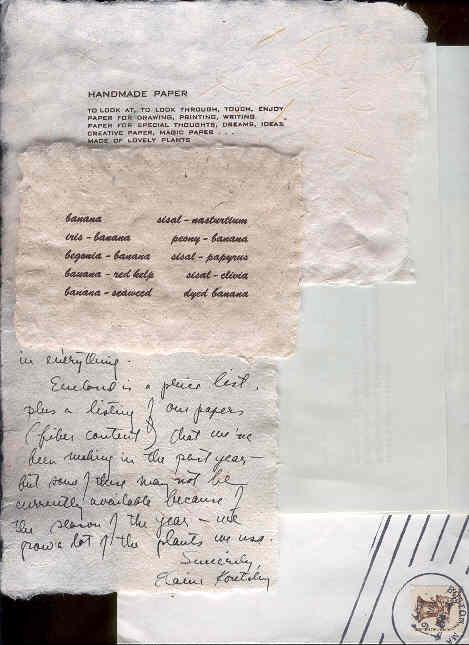 HANDMADE PAPER
TO LOOK AT, TO LOOK THROUGH, TOUCH, ENJOY
PAPER FOR DRAWING, PRINTING, WRITING
PAPER FOR SPECIAL THOUGHTS, DREAMS, IDEAS
CREATIVE PAPER, MAGIC PAPER . . .
MADE OF LOVELY PLANTS
banana sisal - nasturtium
iris - banana peony - banana
begonia - banana sisal - papyrus
banana - red kelp sisal - clivia
banana - seaweed dyed banana
in everything.
Enclosed is a price list,
plus a listing of our papers
(fiber content) that we've
been making in the past year -
but some of these may not be
currently available because of
the season of the year - we
grow a lot of the plants we use.
Sincerely,
Elaine Koretsky
BOSTON MA